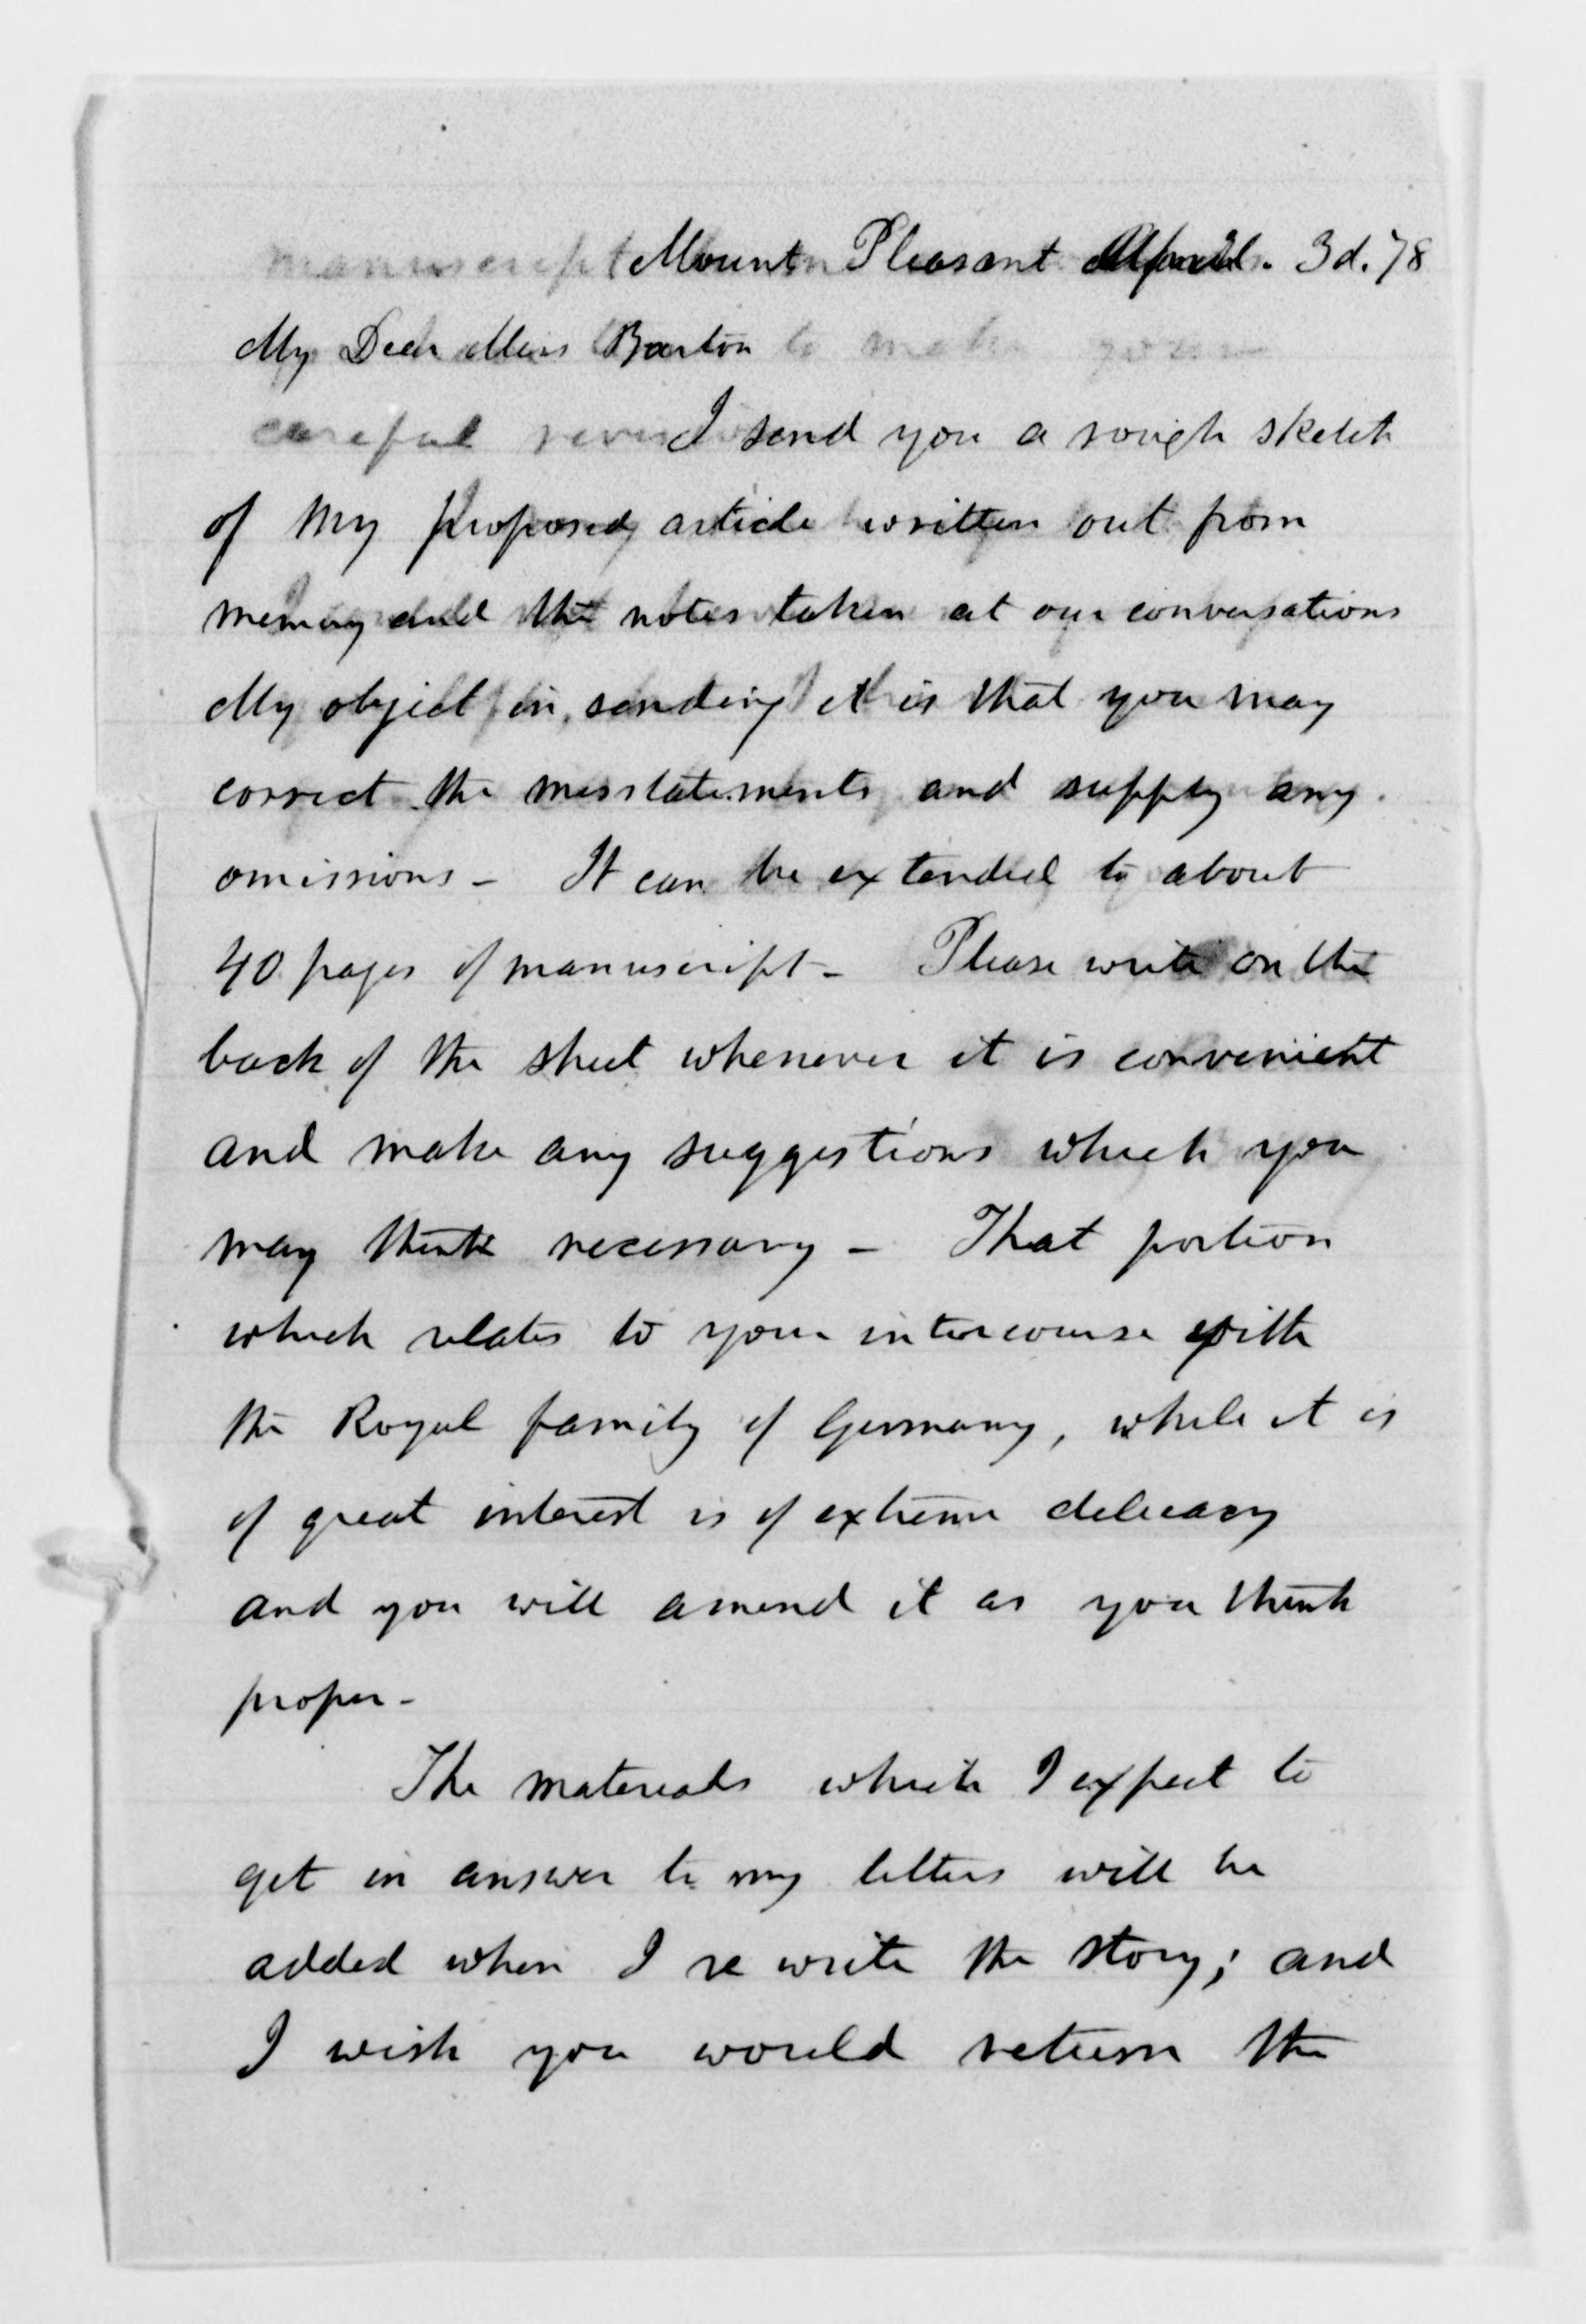 Mount Pleasant April. 3d. 78
My Dear Miss Barton
I send you a rough sketch
of my proposed article written out from
memory and the notes taken at our conversations
My object in sending it is that you may
correct the misstatements and supply any
omissions - It can be extended to about
40 pages of manuscript - Please write on the
back of the sheet whenever it is convenient
and make any suggestions which you
may think necessary - That portion
which relates to your intercourse with
the Royal family of Germany, while it is
of great interest is of extreme delicacy
and you will amend it as you think
proper -
The materials which I expect to
get in answer to my letters will be
added when I re write the story; and
I wish you would return the